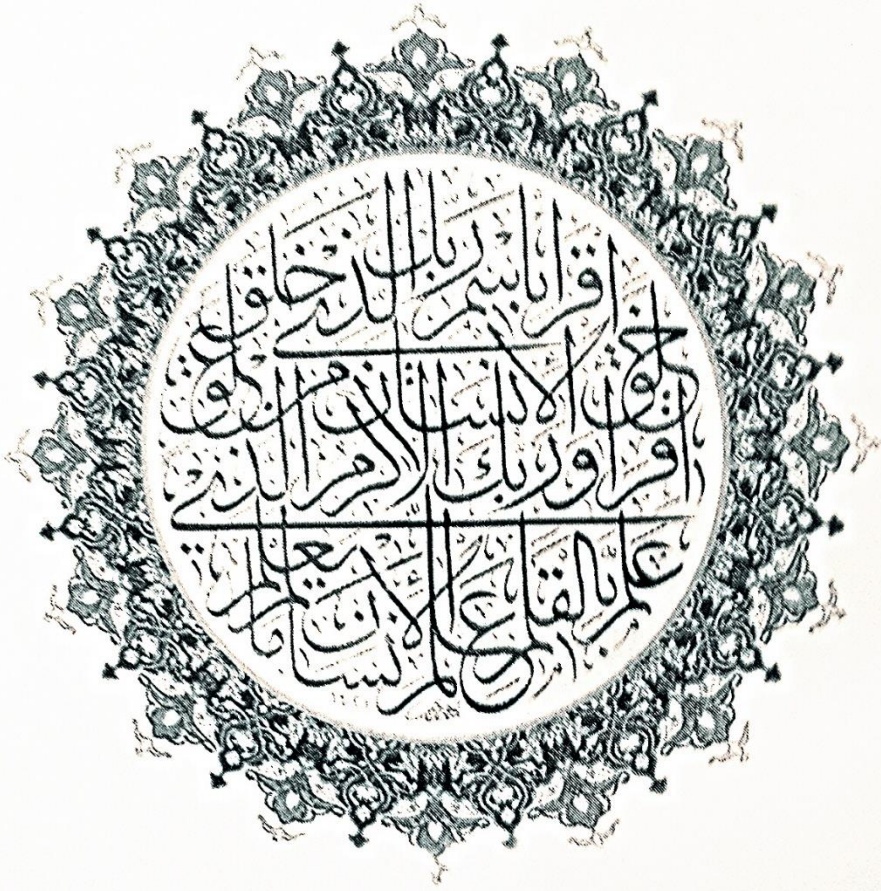 اقرأ باسم ربك الذي خلق
خلق الإنسان من علق
اقرأ وربك الأكرم الذي
علم بالقلم علم الإنسان ما لم يعلم